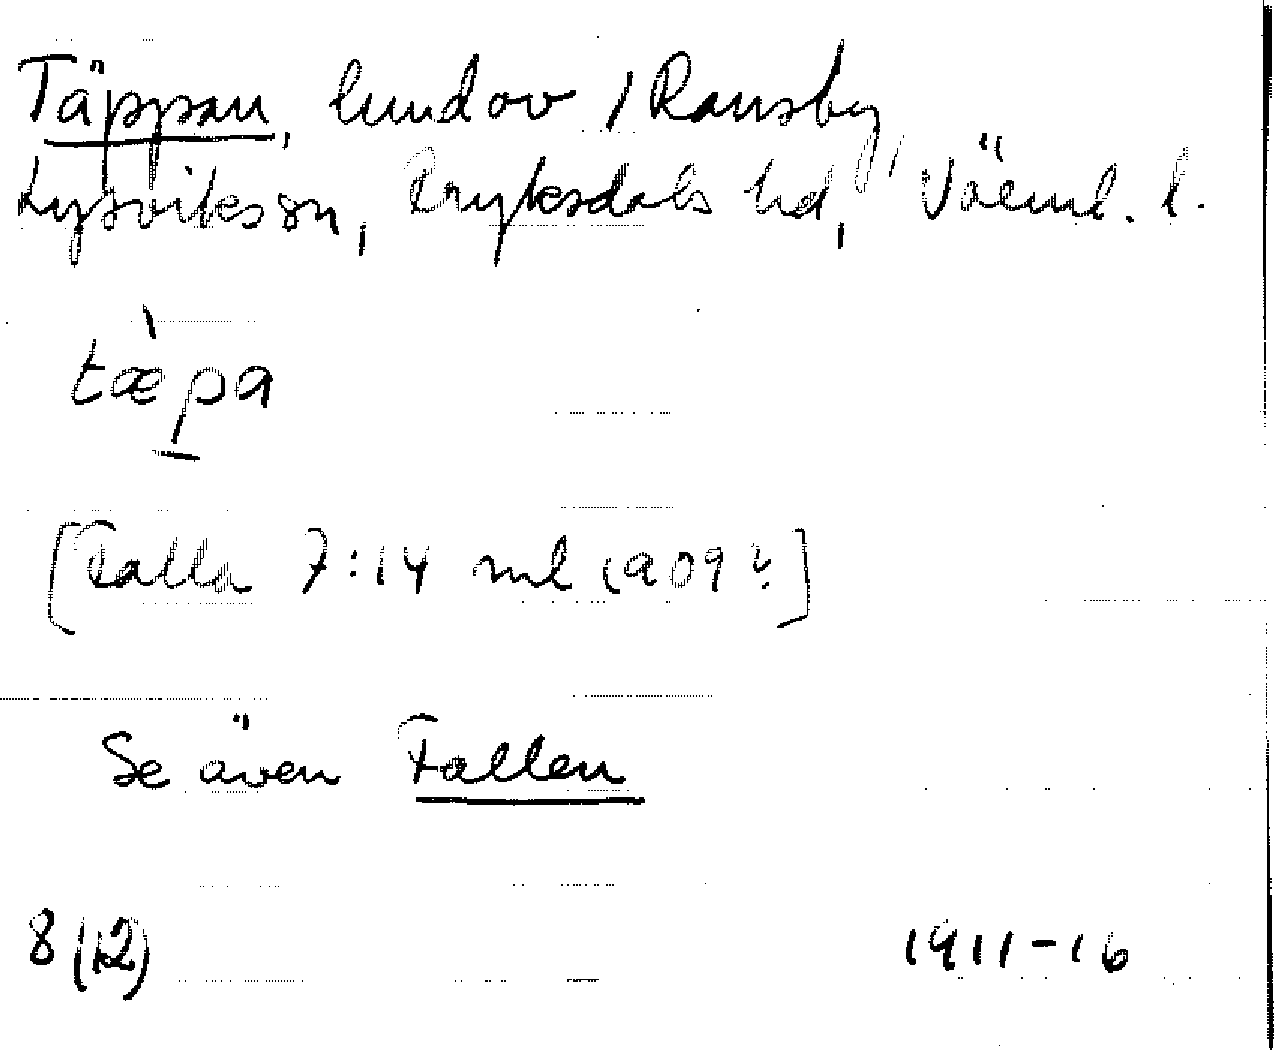 Täppan, lundav i Ransby,
Lysviks sn, Fryksdals hd, Värml. l.
tæ̀pa
[Falla 7:14 ml 1909?]
Se även Fallen
8 (12) 1911-16